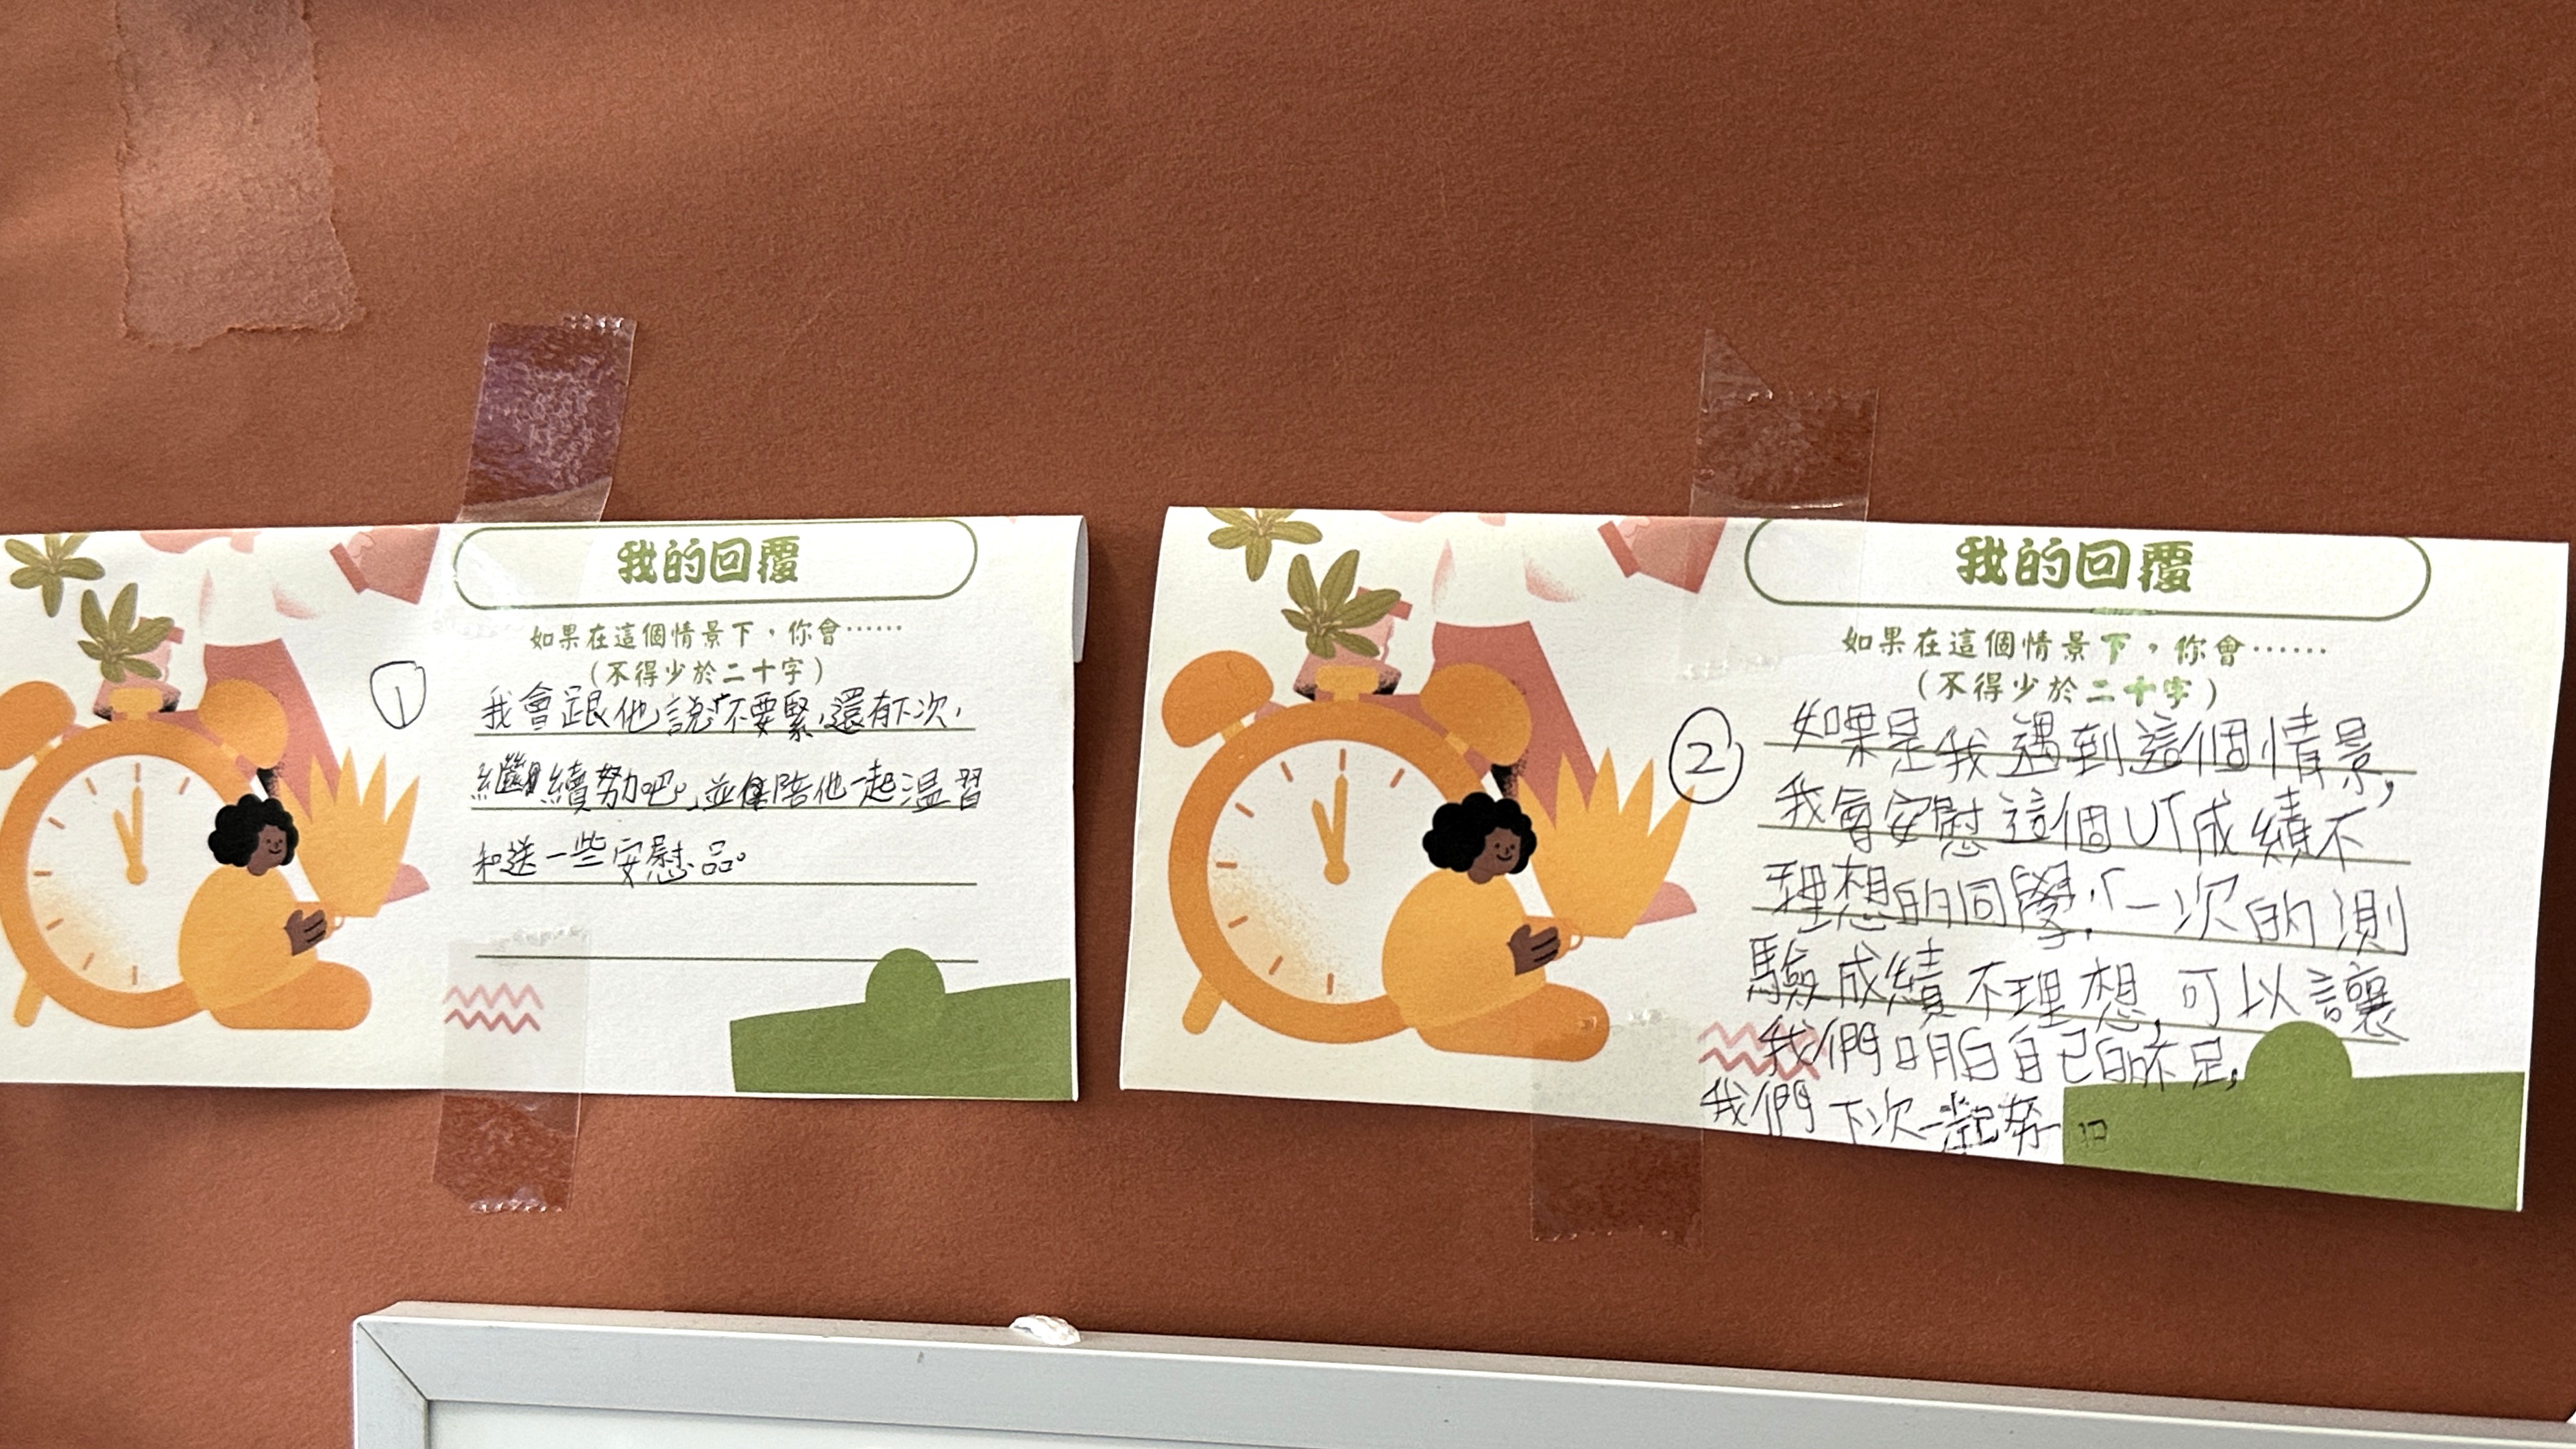 我的回覆
如果在這個情景下，你會……
（不得少於二十字）
①
我會跟他說:"不要緊,還有下次,
繼續努力吧。"並陪他一起温習
和送一些安慰品。
我的回覆
如果在這個情景下，你會……
（不得少於二十字）
②
如果是我遇到這個情景,
我會安慰這個UT成績不
理想的同學:「一次的測
驗成績不理想,可以讓
我們明白自己的不足,
我們下次一起努